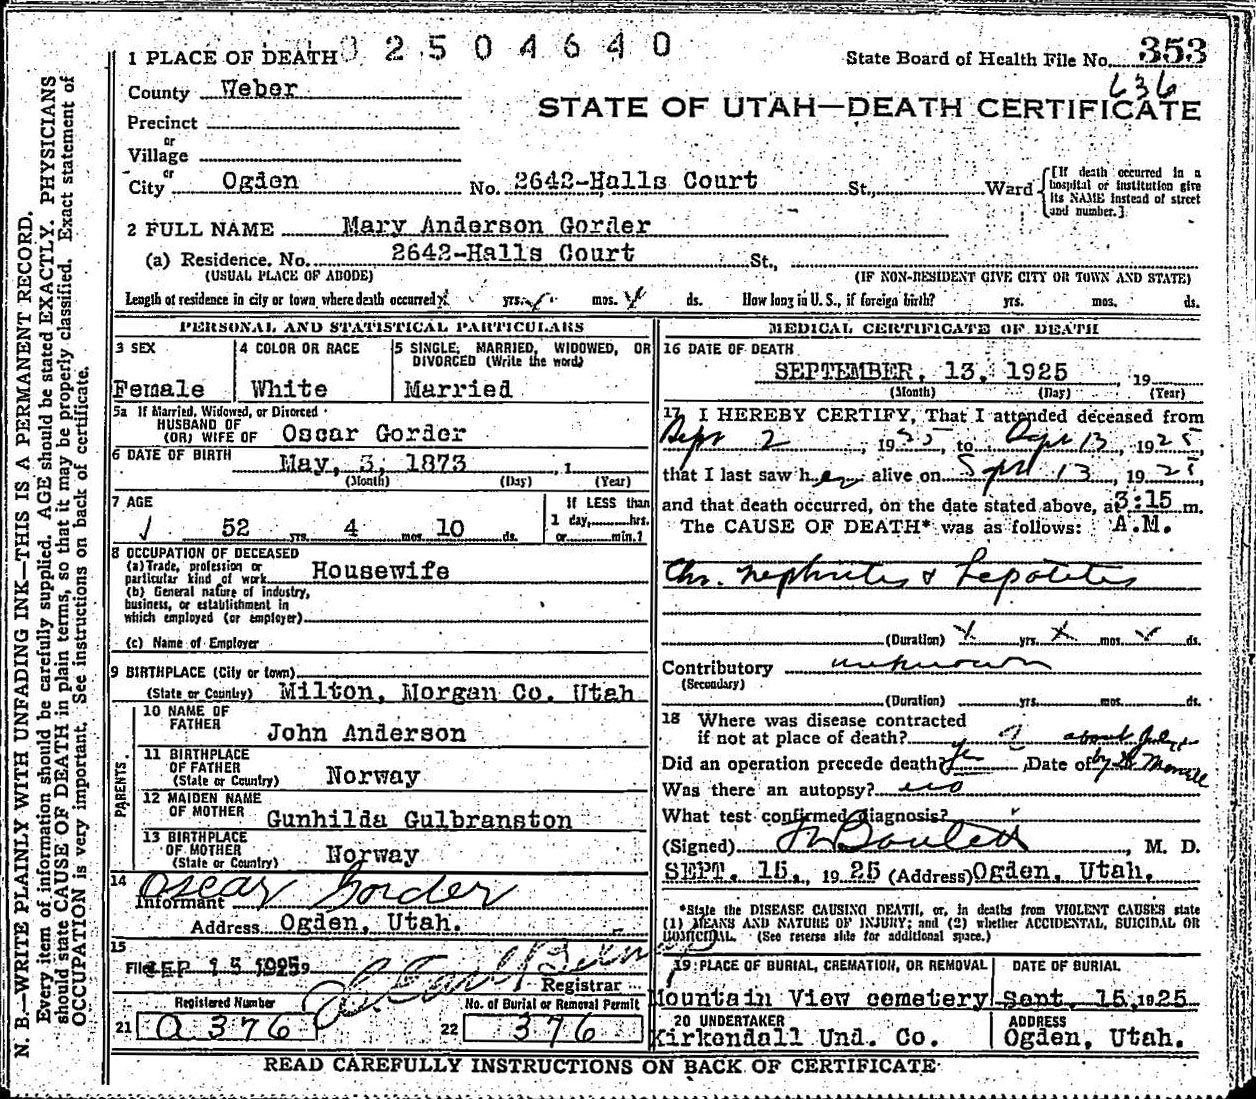 1 PLACE OF DEATH 0 2 5 0 4 6 4 0
State Board of Health File No. 353
636
County Weber
STATE OF UTAH—DEATH CERTIFICATE
Precinct
or
Village
or
City Ogden No. 2642-Halls Court St., Ward
[If death occurred in a hospital or institution give its NAME instead of street and number.]
2 FULL NAME Mary Anderson Gorder
(a) Residence. No. 2642-Halls Court St.,
(USUAL PLACE OF ABODE) (IF NON-RESIDENT GIVE CITY OR TOWN AND STATE)
Length of residence in city or town where death occurred yrs. mos. ds. How long in U. S., if foreign birth? yrs. mos. ds.
PERSONAL AND STATISTICAL PARTICULARS
3 SEX
Female
4 COLOR OR RACE
White
5 SINGLE, MARRIED, WIDOWED, OR
DIVORCED (Write the word)
Married
5a If Married, Widowed, or Divorced
HUSBAND OF
(OR) WIFE OF Oscar Gorder
6 DATE OF BIRTH May, 3, 1873 , 1
(Month) (Day) (Year)
7 AGE
52 yrs. 4 mos. 10 ds.
If LESS than
1 day, hrs.
or min.?
8 OCCUPATION OF DECEASED
(a) Trade, profession or
particular kind of work Housewife
(b) General nature of industry,
business, or establishment in
which employed (or employer)
(c) Name of Employer
9 BIRTHPLACE (City or town)
(State or Country) Milton, Morgan Co. Utah
PARENTS.
10 NAME OF
FATHER John Anderson
11 BIRTHPLACE
OF FATHER
(State or Country) Norway
12 MAIDEN NAME
OF MOTHER Gunhilda Gulbranston
13 BIRTHPLACE
OF MOTHER
(State or Country) Norway
14 Oscar Gorder
Informant
Address Ogden, Utah.
15
Filed SEP 15 1925
Registrar
Registered Number
21 a 376
No. of Burial or Removal Permit
22 376
MEDICAL CERTIFICATE OF DEATH
16 DATE OF DEATH
SEPTEMBER, 13, 1925 , 19
(Month) (Day) (Year)
17 I HEREBY CERTIFY, That I attended deceased from
Sept 2, 1925, to Sept 13, 1925
that I last saw her alive on Sept 13, 1925,
and that death occurred, on the date stated above, at 3:15 m.
The CAUSE OF DEATH* was as follows: A.M.
Chr. nephritis & hepatitis
(Duration) yrs. mos. ds.
Contributory unknown
(Secondary)
(Duration) yrs. mos. ds.
18 Where was disease contracted
if not at place of death? ? about July
Did an operation precede death? yes Date of by Dr Merrill
Was there an autopsy? no
What test confirmed diagnosis?
(Signed) , M. D.
SEPT. 15., 1925 (Address) Ogden, Utah.
*State the DISEASE CAUSING DEATH, or, in deaths from VIOLENT CAUSES state
(1) MEANS AND NATURE OF INJURY; and (2) whether ACCIDENTAL, SUICIDAL OR
HOMICIDAL. (See reverse side for additional space.)
19 PLACE OF BURIAL, CREMATION, OR REMOVAL
Mountain View cemetery
DATE OF BURIAL
Sept. 15, 1925
20 UNDERTAKER
Kirkendall Und. Co.
ADDRESS
Ogden, Utah.
READ CAREFULLY INSTRUCTIONS ON BACK OF CERTIFICATE
N. B.—WRITE PLAINLY WITH UNFADING INK—THIS IS A PERMANENT RECORD.
Every item of information should be carefully supplied. AGE should be stated EXACTLY. PHYSICIANS
should state CAUSE OF DEATH in plain terms, so that it may be properly classified. Exact statement of
OCCUPATION is very important. See instructions on back of certificate.